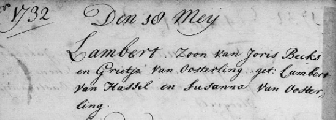 1732
Den 18 Mey
Lambert. Zoon van Joris Becks
en Grietje van Oosterling get: Lambert
van Hassel en Susanna van Ooster,
ling.